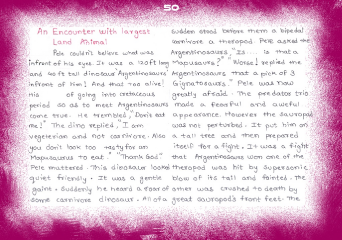 50
An Encounter with largest
Land Animal
Pele couldn't believe what was
infront of his eyes. It was a 120ft long
and 40ft tall dinosaur Argentinosaurus
infront of him! And that too alive!
His of going into cretaceous
period so as to meet Argentinosaurus
come true. He trembled, "Don't eat
me!" The dino replied, "I am
vegeterian and not carnivore. Also
you don't look too tasty for an
Mapusaurus to eat." "Thank God"
Pele muttered. This dinosaur looked
quiet friendly. It was a gentle
giant. Suddenly he heard a roar of
some carnivore dinosaur. All of a
sudden stood before them a bipedal
carnivore a theropod. Pele asked the
Argentinosaurus, "Is is that a
Mapusaurus?" "Worse! replied the
Argentinosaurus that a pick of 3
Giganotosaurus." Pele was now
greatly afraid. The predators trio
made a fearful and aweful
appearance. However the sauropod
was not perturbed. It put him on
a tall tree and then prepared
itself for a fight. It was a fight
that Argentinosaurus won one of the
theropod was hit by supersonic
blow of its tail and fainted. The
other was crushed to death by
great sauropod's front feet. The